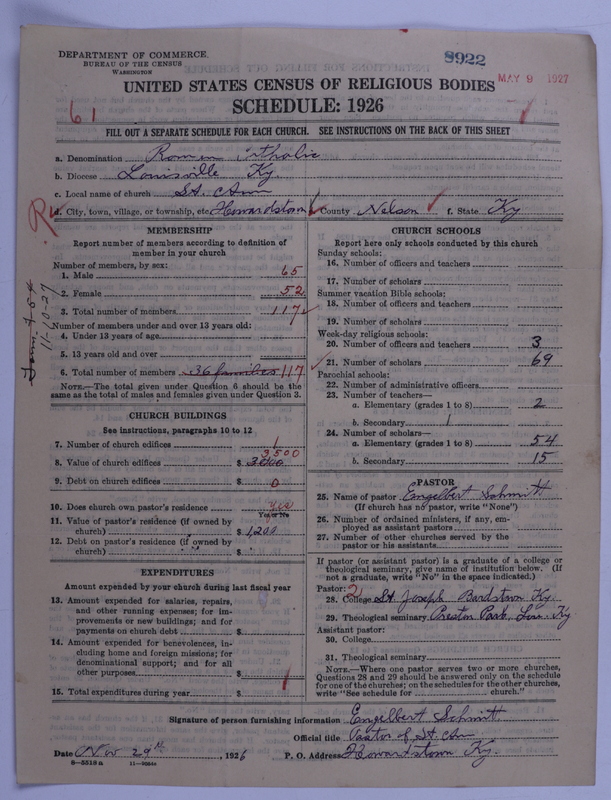 DEPARTMENT OF COMMERCE
BUREAU OF THE CENSUS
WASHINGTON
8922
MAY 9 1927
UNITED STATES CENSUS OF RELIGIOUS BODIES
SCHEDULE: 1926
61
FILL OUT A SEPARATE SCHEDULE FOR EACH CHURCH. SEE INSTRUCTIONS ON THE BACK OF THIS SHEET
a. Denomination Roman Catholic
b. Diocese Louisville Ky.
c. Local name of church St. Ann
d. City, town, village, or township, etc. Howardstown County Nelson f. State Ky
MEMBERSHIP
Report number of members according to definition of
member in your church
Number of members, by sex:
1. Male 65
2. Female 52
3. Total number of members 117
Number of members under and over 13 years old:
4. Under 13 years of age
5. 13 years old and over
6. Total number of members 36 families 117
NOTE.—The total given under Question 6 should be the
same as the total of males and females given under Question 3.
11-10-27
CHURCH BUILDINGS
See instructions, paragraphs 10 to 12
7. Number of church edifices 1
3,500
8. Value of church edifices $
9. Debt on church edifices $ 0
10. Does church own pastor's residence yes
Yes or No
11. Value of pastor's residence (if owned by
church) $ 1,200
12. Debt on pastor's residence (if owned by
church) $
EXPENDITURES
Amount expended by your church during last fiscal year
13. Amount expended for salaries, repairs,
and other running expenses; for im-
provements or new buildings; and for
payments on church debt $
14. Amount expended for benevolences, in-
cluding home and foreign missions; for
denominational support; and for all
other purposes $
15. Total expenditures during year $
CHURCH SCHOOLS
Report here only schools conducted by this church
Sunday schools:
16. Number of officers and teachers
17. Number of scholars
Summer vacation Bible schools:
18. Number of officers and teachers
19. Number of scholars
Week-day religious schools:
20. Number of officers and teachers 3
21. Number of scholars 69
Parochial schools:
22. Number of administrative officers
23. Number of teachers—
a. Elementary (grades 1 to 8) 2
b. Secondary 1
24. Number of scholars—
a. Elementary (grades 1 to 8) 54
b. Secondary 15
PASTOR
25. Name of pastor Engelbert Schmitt
(If church has no pastor, write "None")
26. Number of ordained ministers, if any, em-
ployed as assistant pastors
27. Number of other churches served by the
pastor or his assistants
If pastor (or assistant pastor) is a graduate of a college or
theological seminary, give name of institution below. (If
not a graduate, write "No" in the space indicated.)
Pastor: 2
28. College St. Joseph Bardstown Ky.
29. Theological seminary Preston Park, Lou. Ky
Assistant pastor:
30. College
31. Theological seminary
NOTE.—Where one pastor serves two or more churches,
Questions 28 and 29 should be answered only on the schedule
for one of the churches; on the schedules for the other churches,
write "See schedule for church."
Signature of person furnishing information Engelbert Schmitt
Official title Pastor of St. Ann
Date Nov 29th, 1926 P. O. Address Howardstown Ky.
8—5518a